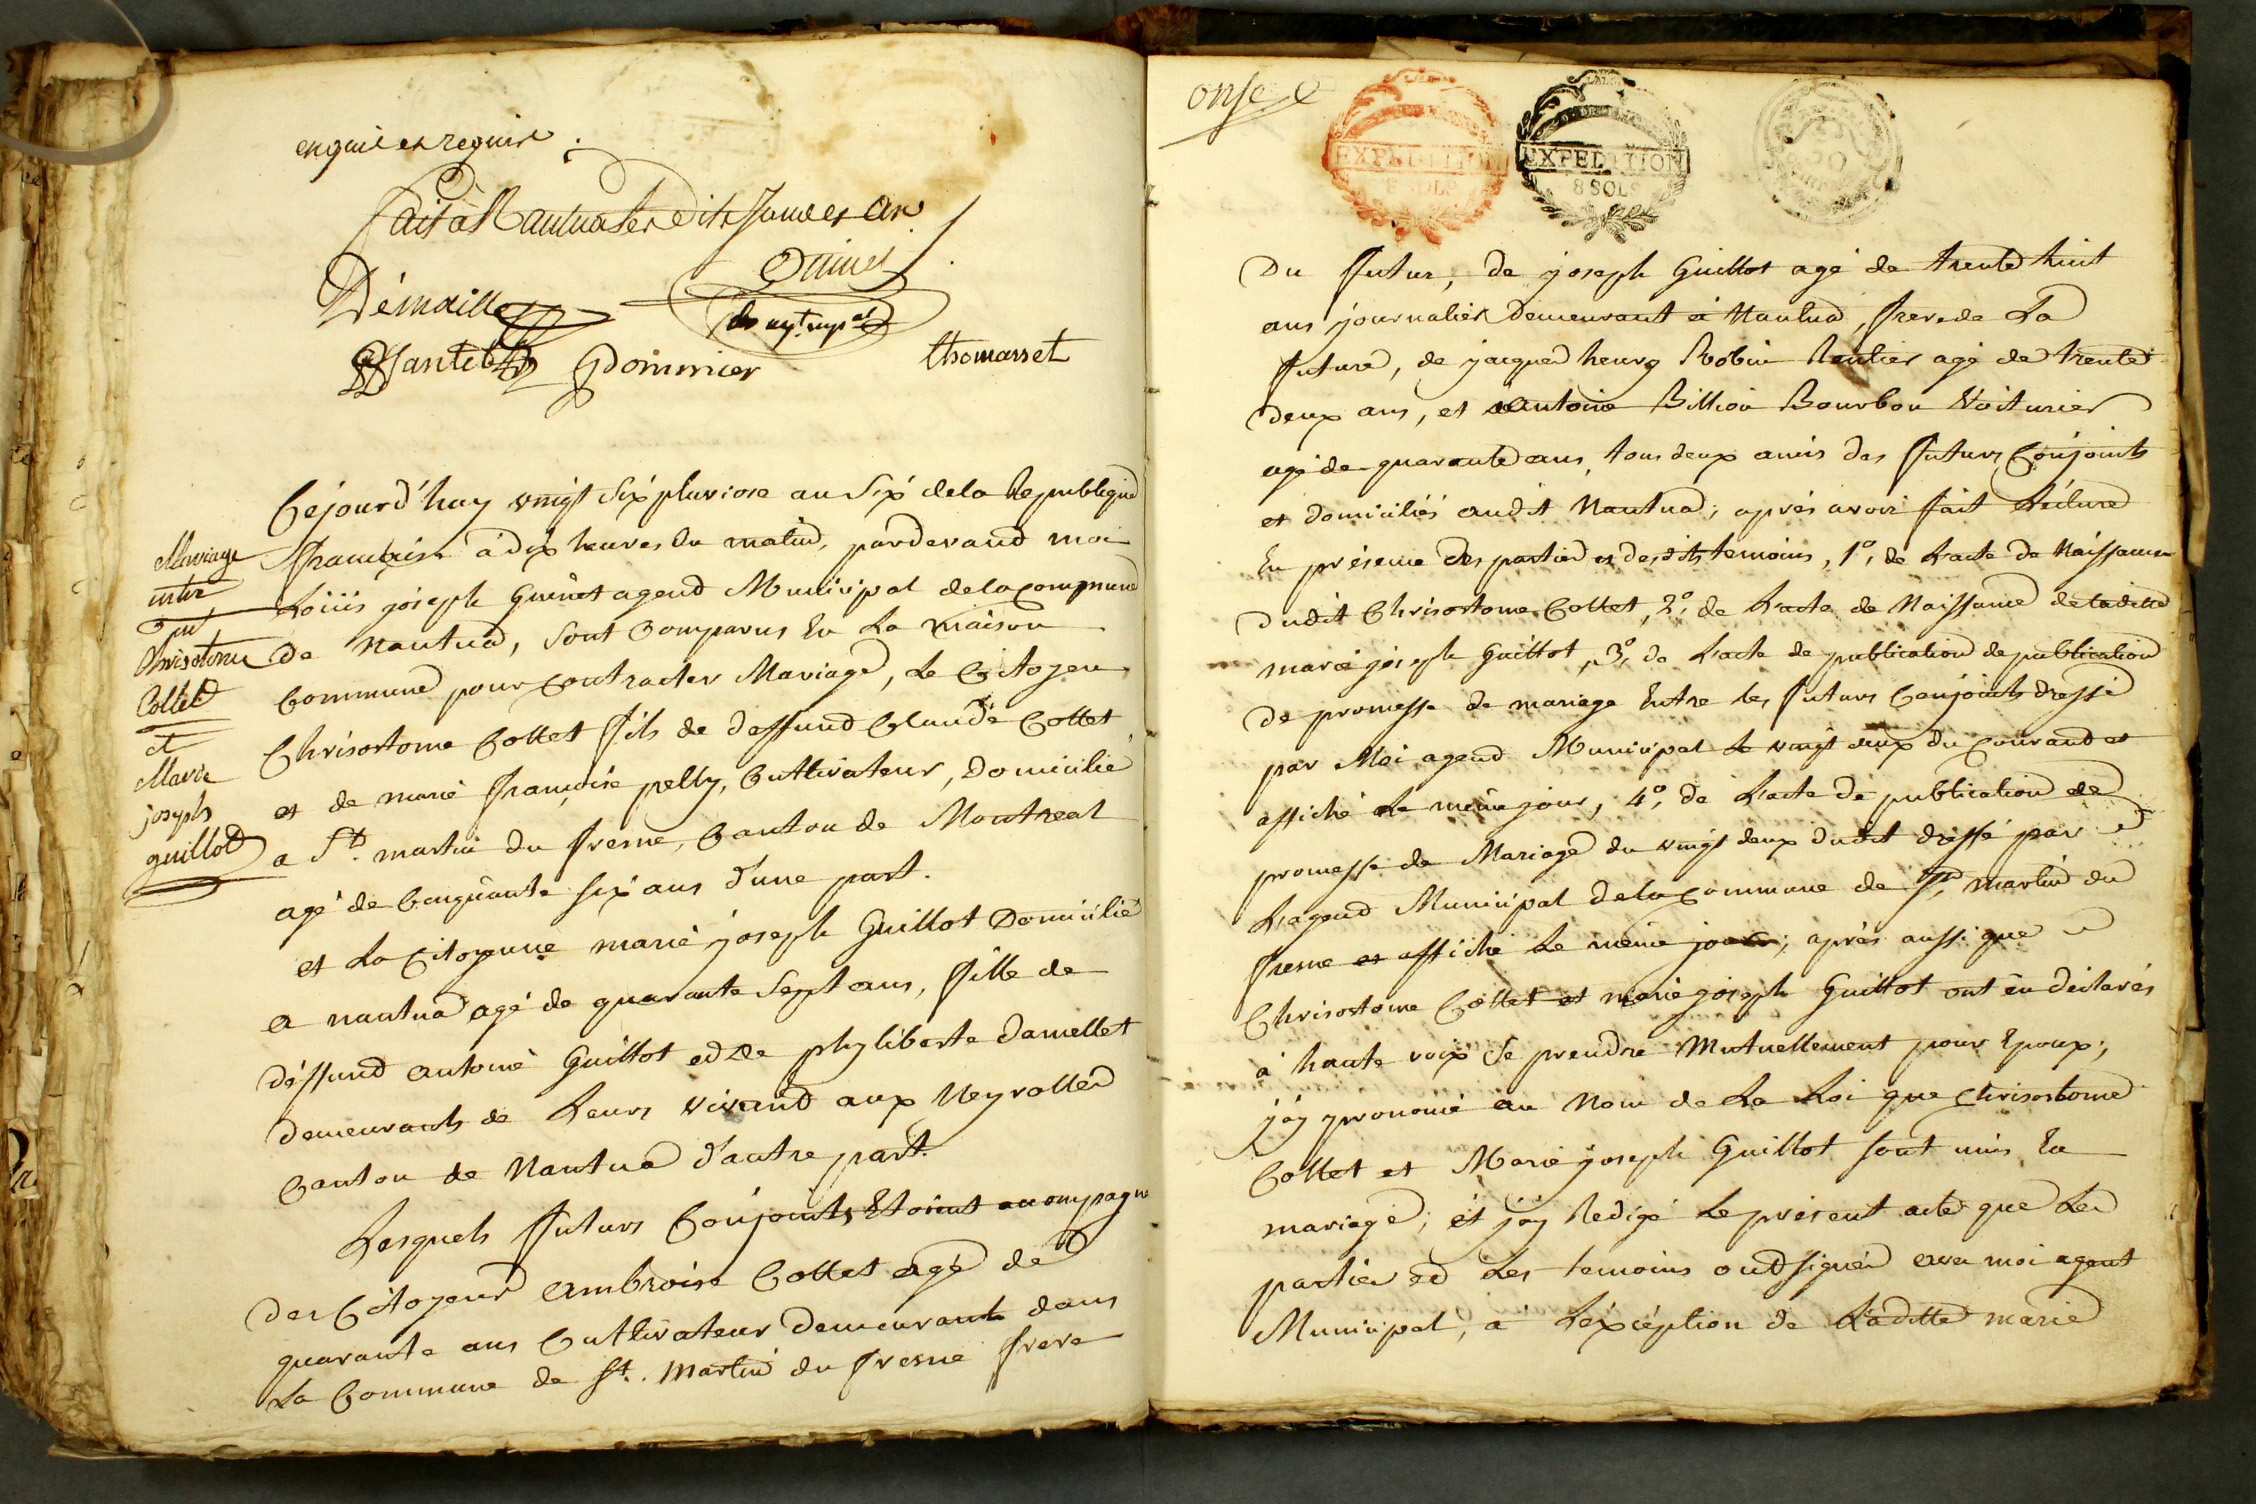 enquis et requis.
fait à Nantua les dits jour et an
Démaille Guinet
agt mpal
Jantet Pommier thomasset
Mariage
entre
Chrisostome
Collet
et
Marie
joseph
guillot
Cejourd'huy vingt six pluviose an six de la Republique
francaise à dix heures du matin, pardevand moi
Loüis joseph Guinet agend Municipal de la commune
de Nantua, sont comparus En La maison
Commune pour contracter Mariage, Le Citoyen
Chrisostome Collet fils de deffund Claude Collet
et de marie françoise pelly, Cultivateur, domicilié
a St. martin du fresne, Canton de Montreal
agé de Cinquante six ans d'une part.
et La Citoyenne marie joseph Guillot Domicilié
a nantua agé de quarante sept ans, fille de
déffund antoine Guillot ed de phyliberte damellet
demeurants de Leurs vivand aux Neyrolles
Canton de Nantua d'autre part.
Lesquels futurs Conjoints Etoient accompagn
des Citoyens ambroise Collet agé de
quarante ans Cultivateur demeurant dans
La Commune de St. Martin du fresne frere
onse
EXPEDITION
8 SOLS
EXPEDITION
8 SOLS
Du futur, de joseph Guillot agé de trente huit
ans journalier demeurant à Nantua, frere de La
future, de jacques henry Robin Rentier agé de trente
deux ans, et antoine Billion Bourbon Voiturier
agé de quarante ans, tous deux amis des futurs Conjoints
et domiciliés audit Nantua; après avoir fait Lecture
En présence des parties et desdits temoins, 1°, de L'acte de Naissance
dudit Chrisostome Collet, 2°, de L'acte de Naissance de ladite
marie joseph Guillot, 3°, de L'acte de publication de publication
de promesse de mariage Entre les futurs Conjoints dressé
par Moi agend Municipal Le vingt deux du Courand et
affiché Le même jour, 4°, de L'acte de publication de
promesse de Mariage du vingt deux dudit dressé par
L'agend Municipal de la Commune de St, martin du
fresne et affiché Le même jour; après aussi que
Chrisostome Collet et marie joseph Guillot ont eu déclarés
à haute voix se prendre Mutuellement pour Epoux;
j'ay prononcé au Nom de La Loi que Chrisostome
Collet et Marie joseph Guillot sont unis En
mariage; et j'ay Redigé Le présent acte que Les
parties ed Les temoins ond signés avec moi agent
Municipal, à L'éxcéption de Laditte marie